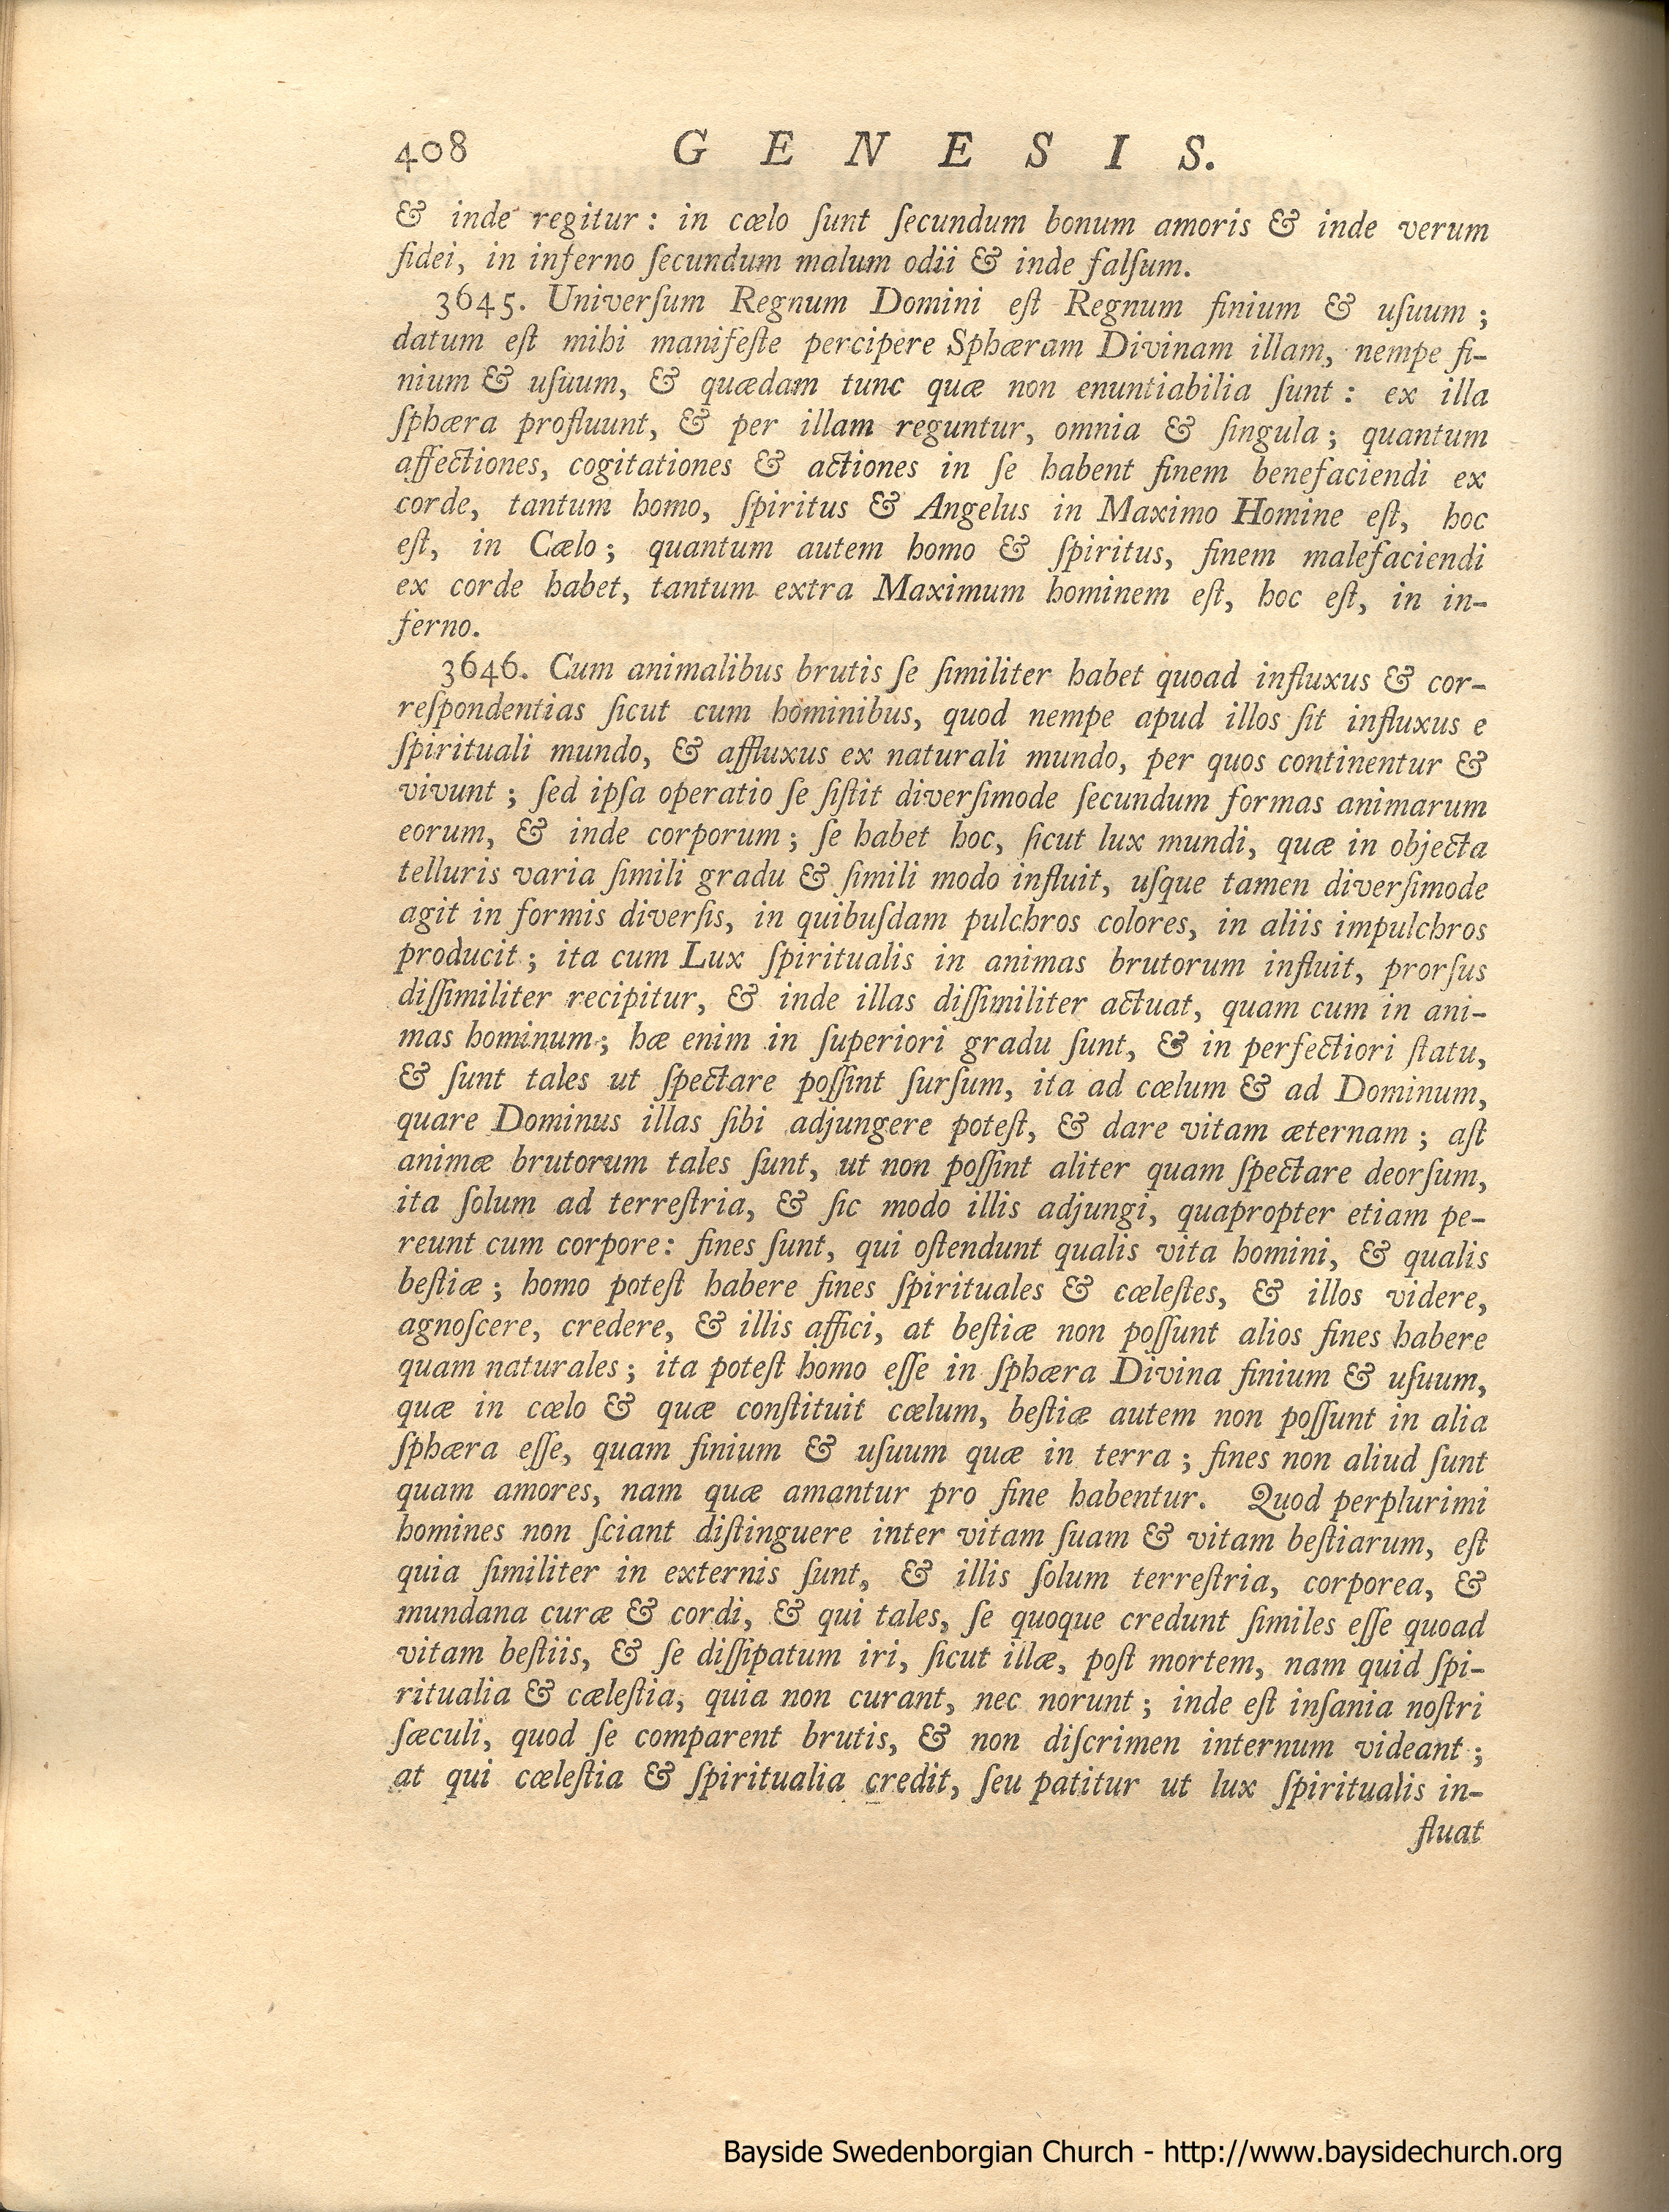 408 G E N E S I S.
& inde regitur : in cœlo ſunt ſecundum bonum amoris & inde verum
fidei, in inferno ſecundum malum odii & inde falſum.
3645. Univerſum Regnum Domini eſt Regnum finium & uſuum ;
datum eſt mihi manifeſte percipere Sphæram Divinam illam, nempe fi-
nium & uſuum, & quædam tunc quæ non enuntiabilia ſunt : ex illa
ſphæra profluunt, & per illam reguntur, omnia & ſingula ; quantum
affectiones, cogitationes & actiones in ſe habent finem benefaciendi ex
corde, tantum homo, ſpiritus & Angelus in Maximo Homine eſt, hoc
eſt, in Cœlo ; quantum autem homo & ſpiritus, finem malefaciendi
ex corde habet, tantum extra Maximum hominem eſt, hoc eſt, in in-
ferno.
3646. Cum animalibus brutis ſe ſimiliter habet quoad influxus & cor-
reſpondentias ſicut cum hominibus, quod nempe apud illos ſit influxus e
ſpirituali mundo, & affluxus ex naturali mundo, per quos continentur &
vivunt ; ſed ipſa operatio ſe ſiſtit diverſimode ſecundum formas animarum
eorum, & inde corporum ; ſe habet hoc, ſicut lux mundi, quæ in objecta
telluris varia ſimili gradu & ſimili modo influit, uſque tamen diverſimode
agit in formis diverſis, in quibuſdam pulchros colores, in aliis impulchros
producit ; ita cum Lux ſpiritualis in animas brutorum influit, prorſus
diſſimiliter recipitur, & inde illas diſſimiliter actuat, quam cum in ani-
mas hominum ; hæ enim in ſuperiori gradu ſunt, & in perfectiori ſtatu,
& ſunt tales ut ſpectare poſſint ſurſum, ita ad cœlum & ad Dominum,
quare Dominus illas ſibi adjungere poteſt, & dare vitam æternam ; aſt
animæ brutorum tales ſunt, ut non poſſint aliter quam ſpectare deorſum,
ita ſolum ad terreſtria, & ſic modo illis adjungi, quapropter etiam pe-
reunt cum corpore : fines ſunt, qui oſtendunt qualis vita homini, & qualis
beſtiæ ; homo poteſt habere fines ſpirituales & cœleſtes, & illos videre,
agnoſcere, credere, & illis affici, at beſtiæ non poſſunt alios fines habere
quam naturales ; ita poteſt homo eſſe in ſphæra Divina finium & uſuum,
quæ in cœlo & quæ conſtituit cœlum, beſtiæ autem non poſſunt in alia
ſphæra eſſe, quam finium & uſuum quæ in terra ; fines non aliud ſunt
quam amores, nam quæ amantur pro fine habentur. Quod perplurimi
homines non ſciant diſtinguere inter vitam ſuam & vitam beſtiarum, eſt
quia ſimiliter in externis ſunt, & illis ſolum terreſtria, corporea, &
mundana curæ & cordi, & qui tales, ſe quoque credunt ſimiles eſſe quoad
vitam beſtiis, & ſe diſſipatum iri, ſicut illæ, poſt mortem, nam quid ſpi-
ritualia & cœleſtia, quia non curant, nec norunt ; inde eſt inſania noſtri
ſæculi, quod ſe comparent brutis, & non diſcrimen internum videant ;
at qui cœleſtia & ſpiritualia credit, ſeu patitur ut lux ſpiritualis in-
fluat
Bayside Swedenborgian Church - http://www.baysidechurch.org